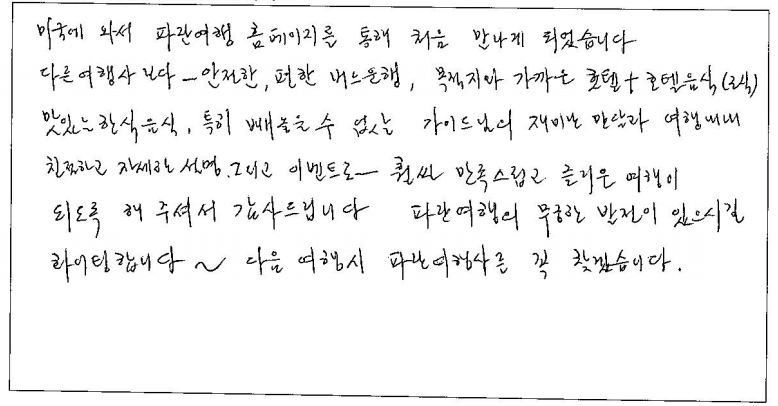 미국에 와서 파란여행 홈페이지를 통해 처음 만나게 되었습니다
다른여행사보다 - 안전한, 편한 버스운행, 목적지와 가까운 호텔 + 호텔음식(조식)
맛있는 한식음식, 특히 빼놓을 수 없는 가이드님의 재미난 만담과 여행내내
친절하고 자세한 설명. 그리고 이벤트로 - 훨씬 만족스럽고 즐거운 여행이
되도록 해 주셔서 감사드립니다 파란여행의 무궁한 발전이 있으시길
화이팅합니다 ~ 다음 여행시 파란여행사를 꼭 찾겠습니다.